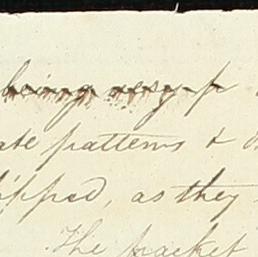 being
ate patterns &
ipped, as they
The packet